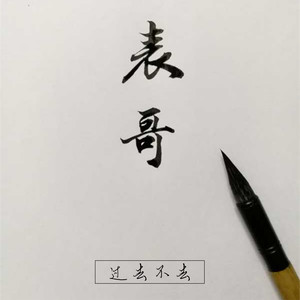 表哥
过去不去